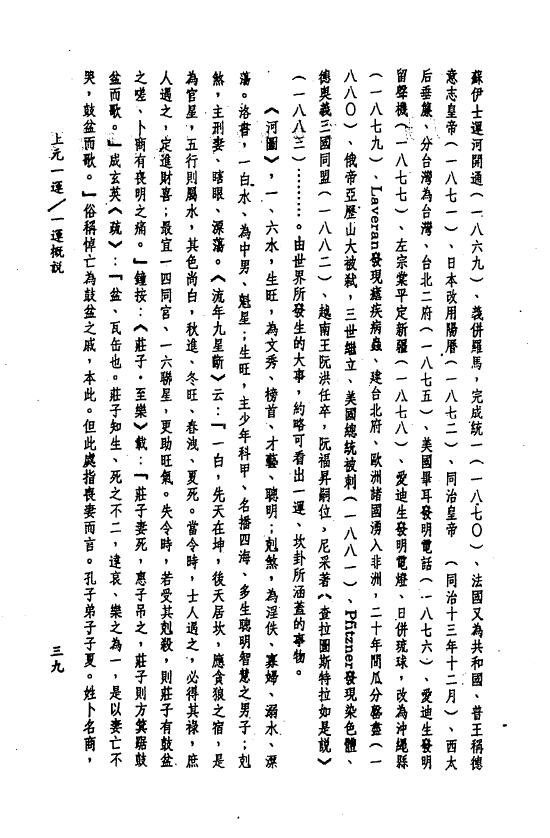 蘇伊士運河開通(一八六九)、義併羅馬,完成統一(一八七〇)、法國又為共和國、普王稱德
意志皇帝(一八七一)、日本改用陽曆(一八七二)、同治皇帝 (同治十三年十二月)、西太
后垂簾、分台灣為台灣、台北二府(一八七五)、美國畢耳發明電話(一八七六)、愛迪生發明
留聲機(一八七七)、左宗棠平定新疆(一八七八)、愛迪生發明電燈、日併琉球,改為沖繩縣
(一八七九)、Laveran發現瘧疾病蟲、建台北府、歐洲諸國湧入非洲,二十年間瓜分畧盡(一
八八〇)、俄帝亞歷山大被弒,三世繼立、美國總統被刺(一八八一)、Pfitzner發現染色體、
德奧義三國同盟(一八八二)、越南王阮洪任卒,阮福昇嗣位、尼采著《查拉圖斯特拉如是說》
(一八八三)………。由世界所發生的大事,約略可看出一運、坎卦所涵蓋的事物。
《河圖》,一、六水,生旺,為文秀、榜首、才藝、聰明;剋煞,為淫佚、寡婦、溺水、漂
蕩。洛書,一白水、為中男、魁星;生旺,主少年科甲、名播四海、多生聰明智慧之男子;剋
煞,主刑妻、瞎眼、漂蕩。《流年九星斷》云:『一白,先天在坤,後天居坎,應貪狼之宿,是
為官星,五行則屬水,其色尚白,秋進、冬旺、春洩、夏死。當令時,士人遇之,必得其祿,庶
人遇之,定進財喜;最宜一四同宮、一六聯星,更助旺氣。失令時,若受其剋殺,則莊子有鼓盆
之嗟、卜商有喪明之痛。』鐘按:《莊子·至樂》載:『莊子妻死,惠子吊之,莊子則方箕踞鼓
盆而歌。』成玄英《疏》:『盆、瓦缶也。莊子知生、死之不二,達哀、樂之為一,是以妻亡不
哭,鼓盆而歌。』俗稱悼亡為鼓盆之戚,本此。但此處指喪妻而言。孔子弟子子夏。姓卜名商,
上元一運/一運概說
三九